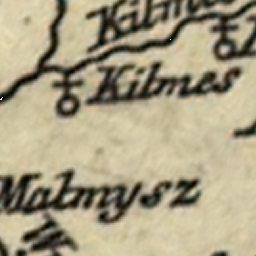 Kilmes
Kilmes
Malmysz